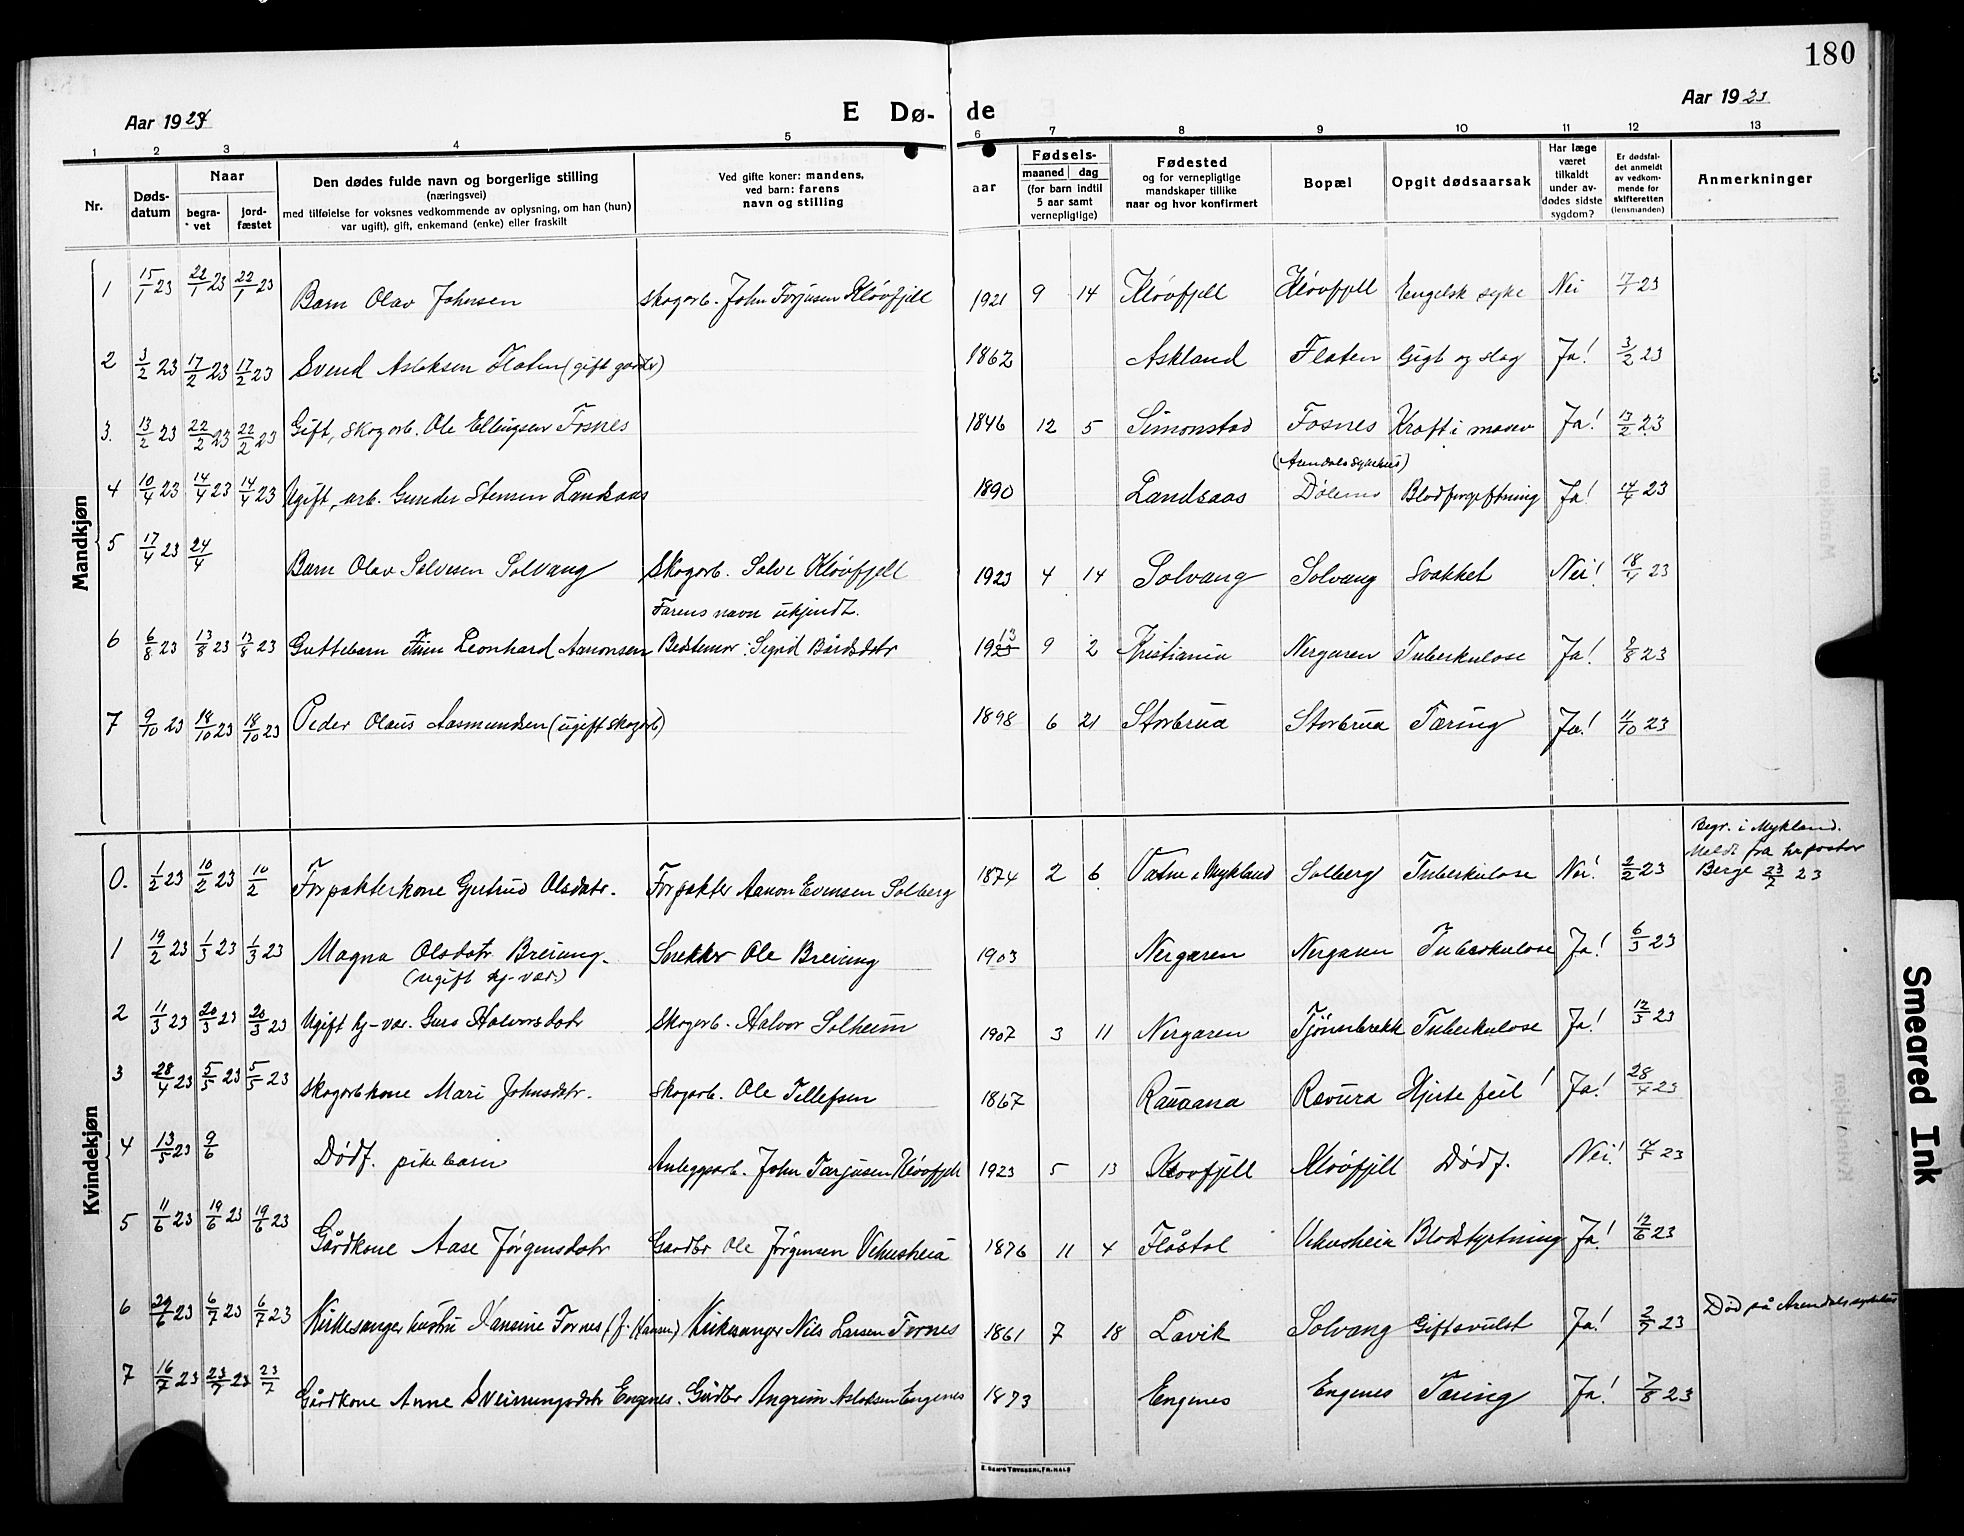 180
Aar 1923
E Dø- de
Aar 1923
1 2 3 4 5 6 7 8 9 10 11 12 13
Nr.
Døds-
datum
Naar
begra-
vet
jord-
fæstet
Den dødes fulde navn og borgerlige stilling
(næringsvei)
med tilføielse for voksnes vedkommende av oplysning, om han (hun)
var ugift), gift, enkemand (enke) eller fraskilt
Ved gifte koner: mandens,
ved barn: farens
navn og stilling
aar
Fødsels-
maaned dag
(for barn indtil
5 aar samt
vernepligtige)
Fødested
og for vernepligtige
mandskaper tillike
naar og hvor konfirmert
Bopæl
Opgit dødsaarsak
Har læge
været
tilkaldt
under av-
dødes sidste
sygdom?
Er dødsfal-
det anmeldt
av vedkom-
mende for
skifteretten
(lensmanden)
Anmerkninger
Mandkjøn
1 15/1 23 22/1 23 22/1 23 Barn Olav Johnsen Skogarb. John Torjusen Kløvfjell 1921 9 14 Kløvfjell Kløvfjell Engelsk syke Nei 17/1 23
2 3/2 23 17/2 23 17/2 23 Svend Aslaksen Flaten (gift gardbr) 1862 Askland Flaten Gigt og slag Ja! 3/2 23
3. 13/2 23 22/2 23 22/2 23 Gift, skogarb. Ole Ellingsen Fosnes 1846 12 5 Simonstad Fosnes Kræft i maven Ja! 13/2 23
4 10/4 23 14/4 23 14/4 23 Ugift, arb. Gunder Stensen Landsaas 1890 Landsaas (Arendals sykehus) Dølemo Blodforgiftning Ja! 14/4 23
5 17/4 23 24/4 Barn Olav Salvesen Solvang Skogarb. Salve Kløvfjell 1923 4 14 Solvang Solvang Svakhet Nei! 18/4 23
Farens navn ukjendt.
6 6/8 23 13/8 23 13/8 23 Guttebarn Finn Leonhard Aanonsen Bestemor: Sigrid Bårdsdatr 1913 9 2 Kristiania Nergaren Tuberkulose Ja! 9/8 23
7 9/10 23 18/10 23 18/10 23 Peder Olaus Aasmundsen (ugift skogarb) 1898 6 21 Storbrua Storbrua Tæring Ja! 11/10 23
Kvindekjøn
0. 1/2 23 10/2 23 10/2 Forpakterkone Gjertrud Olsdatr. Forpakter Aanon Evensen Solberg 1874 2 6 Vatne i Mykland Solberg Tuberkulose Nei! 2/2 23
Begr. i Mykland.
Meldt fra hr pastor
Berge 23/7 23
1 19/2 23 1/3 23 1/3 23 Magna Olsdatr Breiung. Snekker Ole Breiung 1903 Nergaren Nergaren Tuberkulose Ja! 6/3 23
(ugift hj-vær.)
2 11/3 23 20/3 23 20/3 23 Ugift hj-vær. Guro Halvorsdatr Skogarb. Halvor Solheim 1907 3 11 Nergaren Tjönnbrekk Tuberkulose Ja! 12/3 23
3 28/4 23 5/5 23 5/5 23 Skogarbkone Mari Johnsdatr. Skogarb. Ole Tellefsen 1867 Rauaana Ravura Hjerte feil! Ja! 28/4 23
4 13/5 23 9/6 Dødf. pikebarn Anleggsarb. John Tarjusen Kløvfjell 1923 5 13 Kløvfjell Kløvfjell Dødf. Nei! 17/5 23
5 11/6 23 19/6 23 19/6 23 Gårdkone Aase Jørgensdatr Gardbr Ole Jørgensen Vehusheia 1876 11 4 Flåstøl Vehusheia Blodstyrtning Ja! 12/6 23
6 29/6 23 6/7 23 6/7 23 Kirkesangerhustru Jansine Fornes (f. Hansen) Kirkesanger Nils Larsen Fornes 1861 7 18 Lavik Solvang Giftsvulst Ja! 2/7 23 Død på Arendals sykehus
7 16/7 23 23/7 23 23/7 Gårdkone Anne Sveinungsdatr Engenes. Gårdbr Angrim Aslaksen Engenes 1873 Engenes Engenes Tæring Ja! 7/8 23
E. SEM'S TRYKKERI, FR.HALD
Smeared Ink